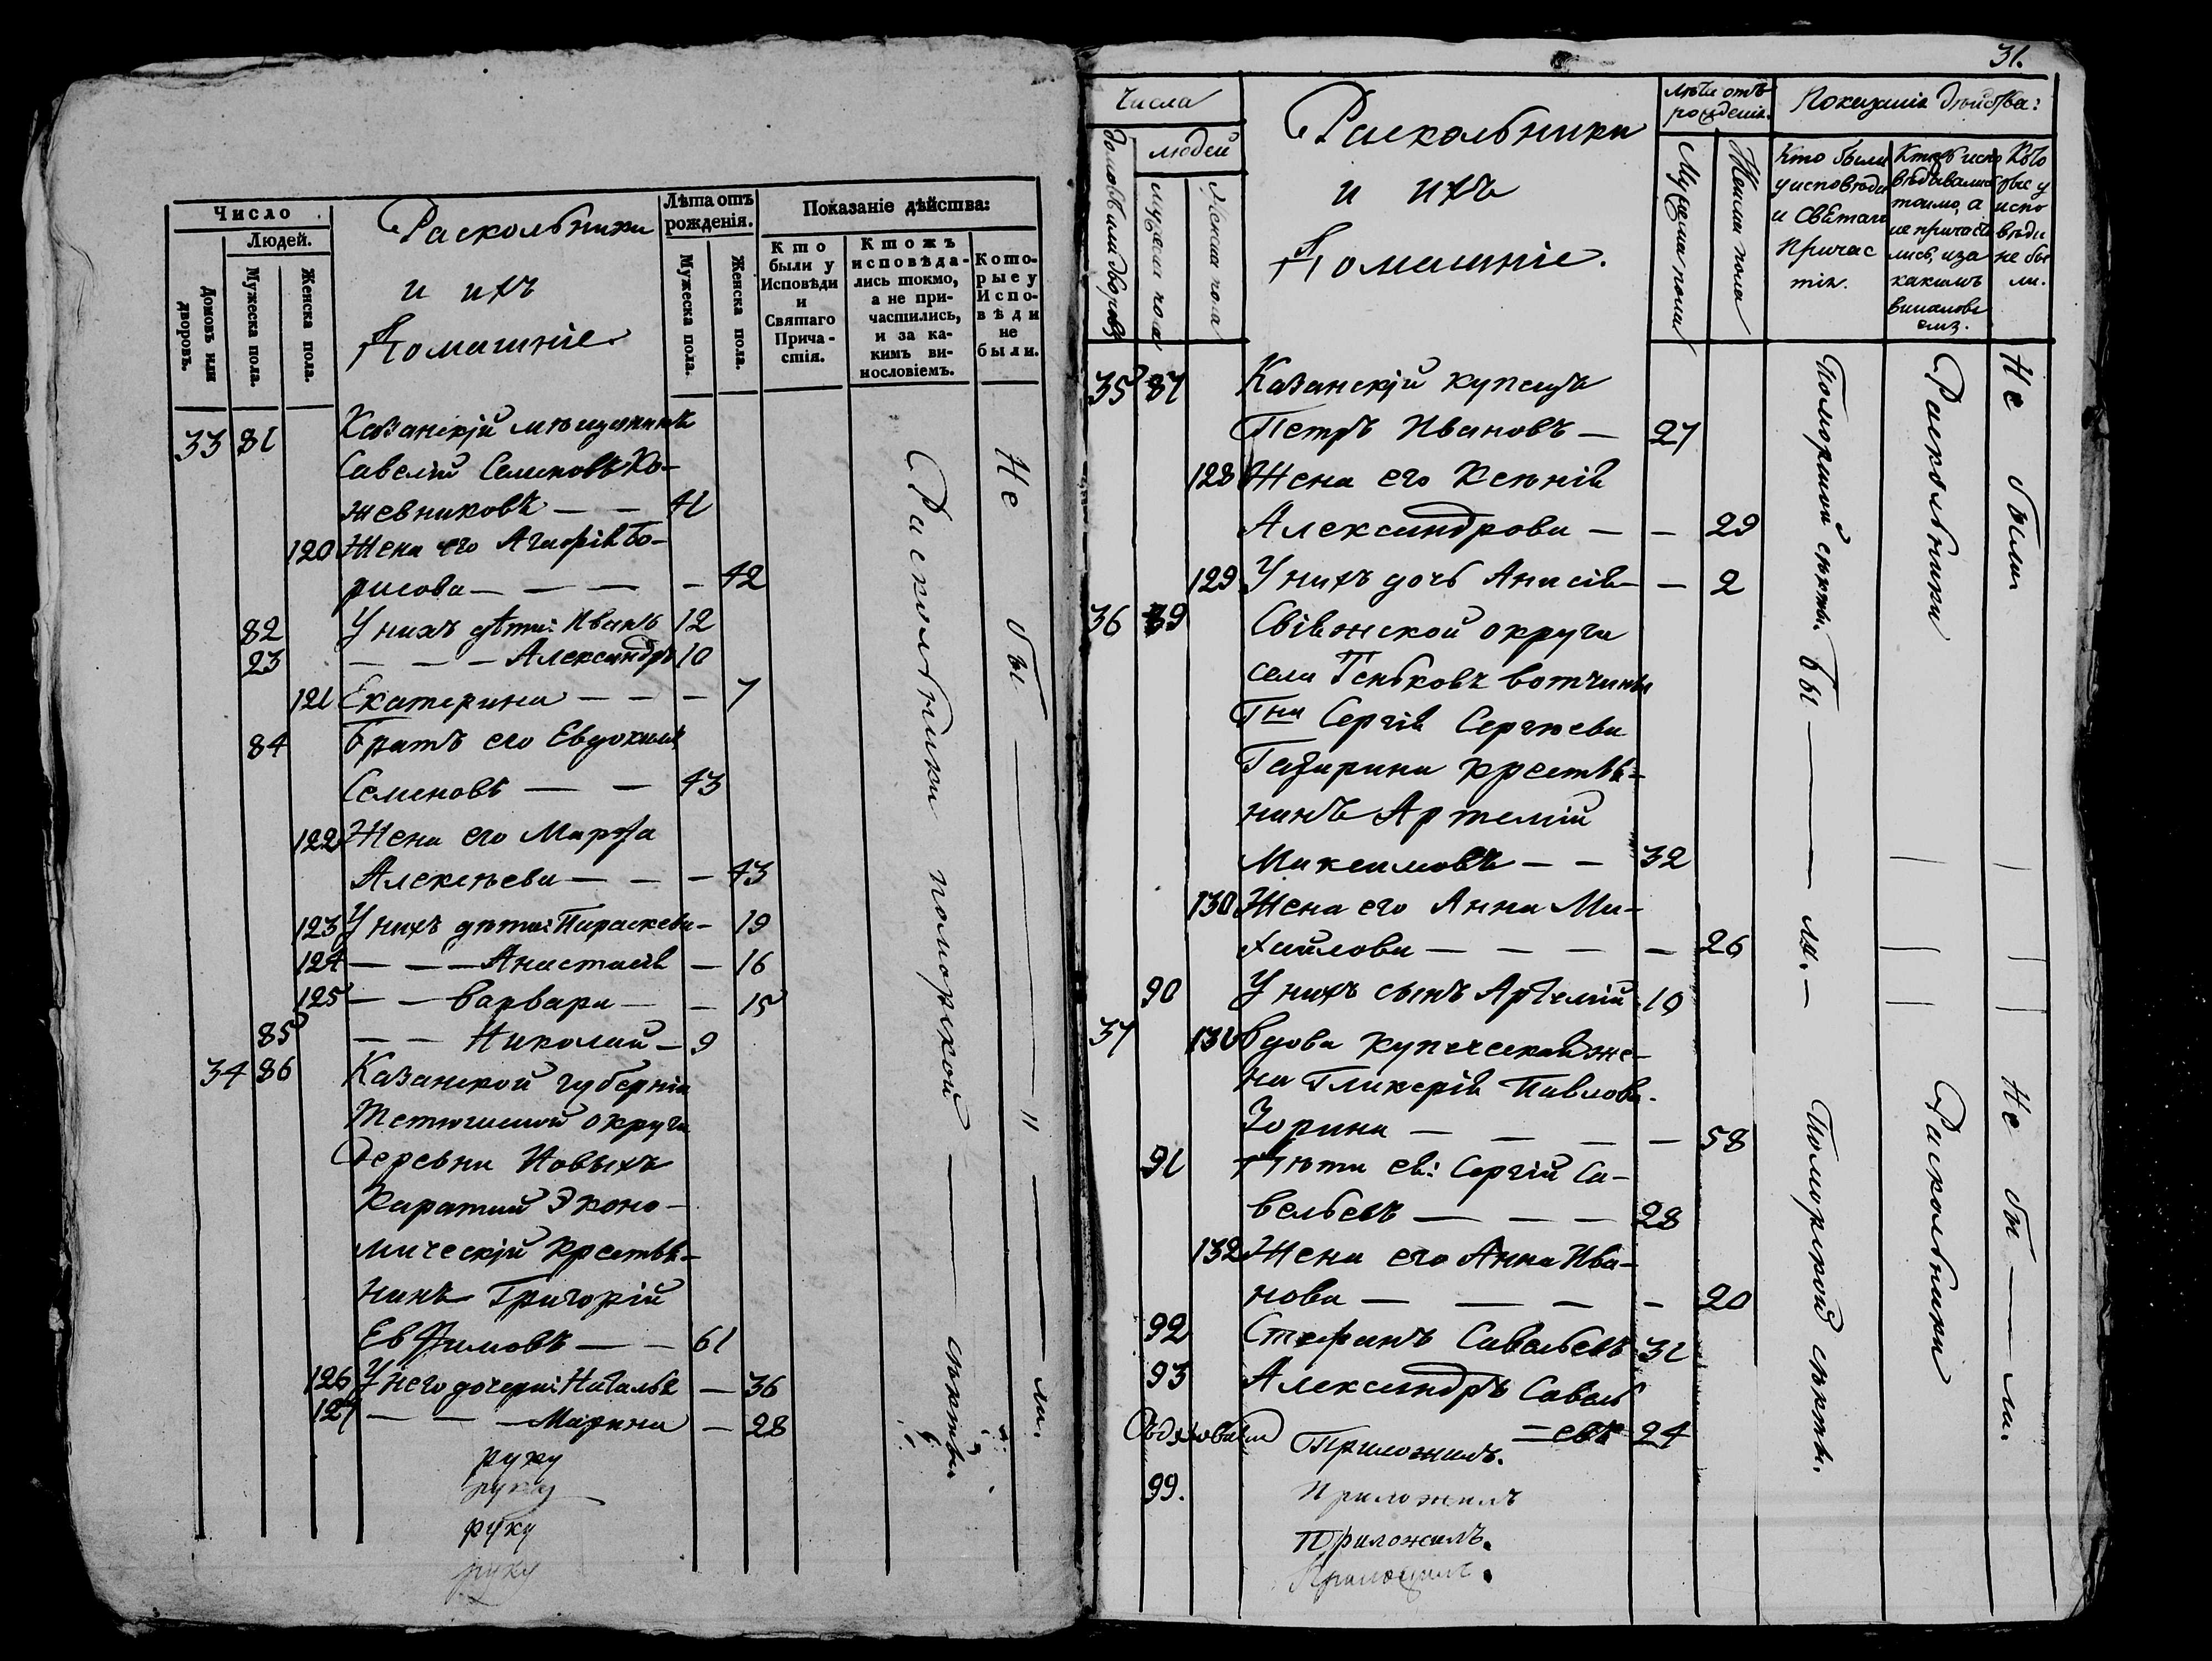 Число
Людей.
Домовъ или дворовъ.
Мужеска пола.
Женска пола.
Раскольники
и ихъ
Домашніе.
Лѣта отъ рожденія.
Мужеска пола.
Женска пола.
Показаніе дѣйства:
Кто были у Исповѣди и Святаго Причастія.
Ктожъ исповѣдались токмо, а не причастились, и за какимъ винословіемъ.
Которые у Исповѣди не были.
33 81 Казанскій мѣщанинъ
Савелій Семеновъ Ко-
жевниковъ — — 41
120 Жена его Агафія Бо-
рисова — — — — 42
82 У нихъ дѣти: Иванъ 12
23 — — — Александръ 10
121 Екатерина — — — 7
84 Братъ его Евдокимъ
Семеновъ — — 43
122 Жена его Марфа
Алексѣева — — — 43
123 У нихъ дѣти: Параскева — 19
124 — — — Анастасія — 16
125 — — Варвара — — 15
85 — — Николай — 9
34 86 Казанской губерніи
Тетюшской округи
деревни Новыхъ
Каратай Эконо-
мическій крестья-
нинъ Григорій
Евфимовъ — — 61
126 У него дочери: Наталья — 36
127 — — — Марина — 28
руку
руку
руку
руку
Раскольники поморской — — секты
Не бы — " — ли.
31.
Числа
людей
домовъ или дворовъ
мужеска пола
женска пола
Раскольники
и ихъ
Домашніе.
лѣта отъ рожденія.
Мужеска пола
Женска пола
Показаніе дѣйства:
Кто были у исповѣди и святаго Причастія.
Ктожъ исповѣдывались токмо, а не причастились, и за какимъ винословіемъ.
Которые у исповѣди не были.
35 87 Казанскій купецъ
Петръ Ивановъ — 27
128 Жена его Ксенія
Александрова — — 29
129 У нихъ дочь Анисія — — 2
36 89 Свіяжской округи
села Теньковъ вотчины
Гна Сергія Сергѣева
Гагарина крестья-
нинъ Артемій
Максимовъ — — 32
130 Жена его Анна Ми-
хайлова — — — — — 26
90 У нихъ сынъ Артемій 10
37 131 Вдова купеческая же-
на Гликерія Павлова
Зорина — — — — 58
91 Дѣти ея: Сергій Са-
вельевъ — — — 28
132 Жена его Анна Ива-
нова — — — — 20
92 Стефанъ Савельевъ 31
93 Александръ Савель
= евъ 24
Приложилъ.
99. Приложилъ
Приложилъ.
Приложилъ.
Поморской секты. бы — — ли. — Поморской секты.
Раскольники Раскольники
Не были Не бы — — ли.